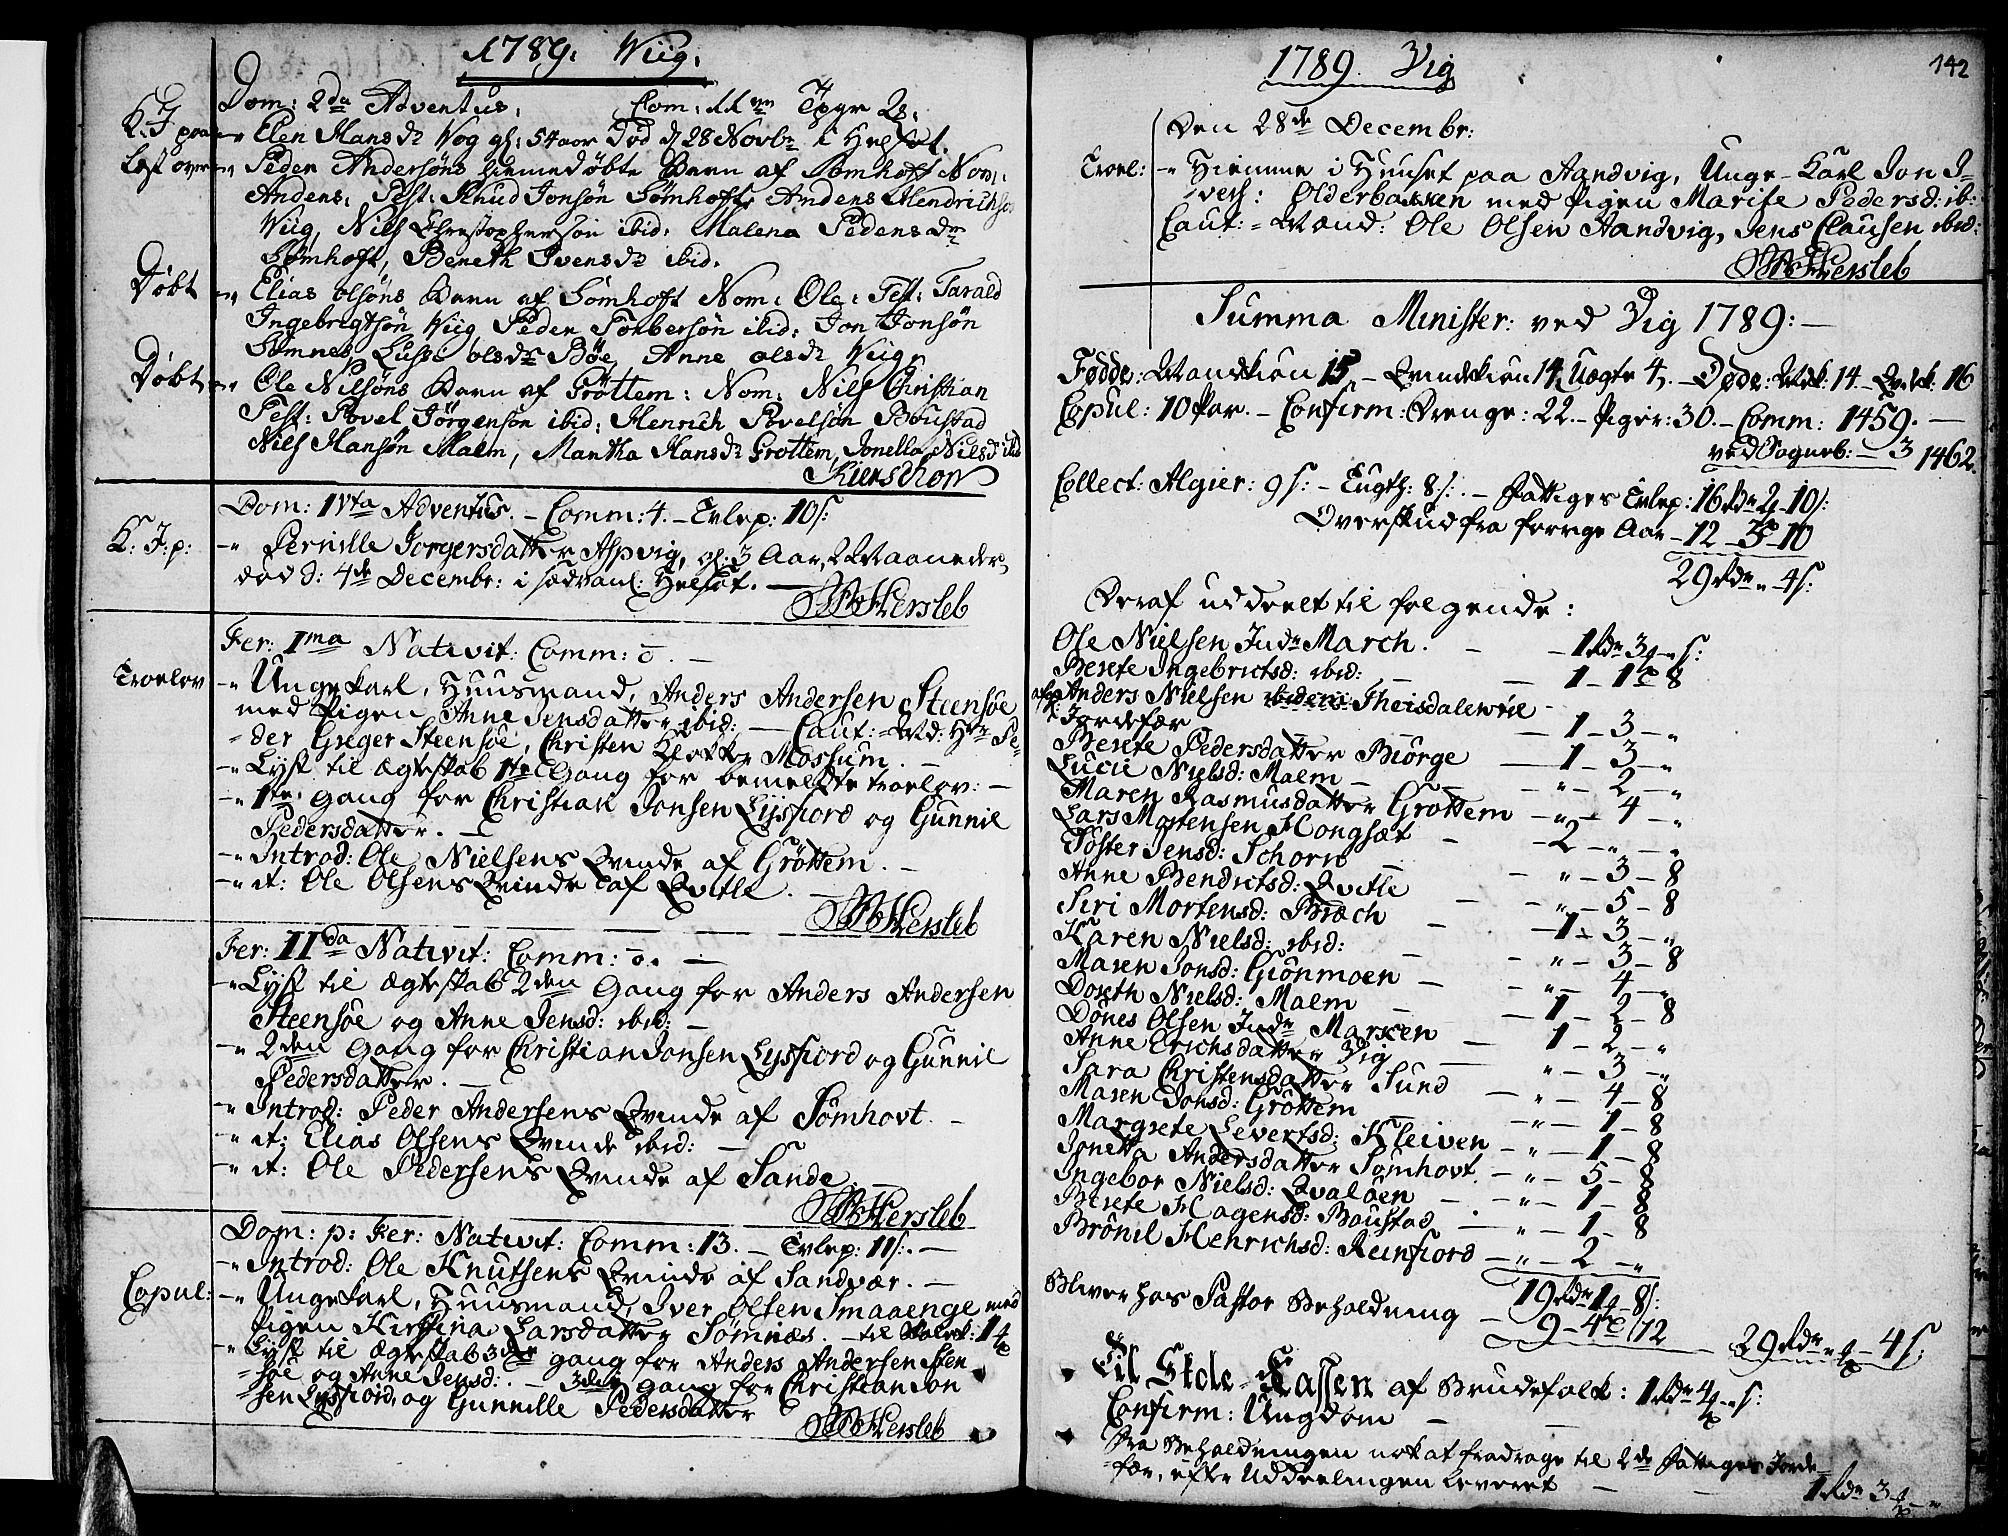 1789. Wiig.
Dom: 2da Adventus. Com: 11
K: J paa Elen Hansdr Wog gl: 54 aar Død d 28 Novbr i Helsot.
Lyst over Peder Andersøns hiemedøbte Barn af Sømhofft Nom:
Anders: Test: Knud Jonsøn Sømhofft, Anders Hendrichsøn
Wiig, Niels Christophersøn ibid: Malena Pedersdr
Sømhofft, Bereth Iversdr ibid.
Døbt Elias olsøns Barn af Sømhofft Nom: Ole: Test: Tarald
Ingebrigtsøn Wiig Peder Torbersøn ibid: Jon Jonsøn
Sømnes Lusse olsdr Bøe Anne olsdr Wiig
Døbt Ole Nilsøns Barn af Grøttem: Nom: Nils Christian
Test: Povel Jørgensøn ibid: Henrich Povelsøn Boustad
Niels Hansøn Malm, Martha Hansdr Grøttem, Jonella Nilsdr ibid
Kierschow
Dom: IVta Adventus. – Comm: 4. – Tvlep: 10 s:
K: J: p: -" Pernille Jorgersdatter Aspvig, gl: 3 Aar, 2 Maaneder,
død d: 4de Decembr: i sædvanl: Helsot. –
Hersleb
Fer: Ima Nativit: Comm: o. –
Troelov -" Ungekarl, Huusmand, Anders Andersen Steensøe
med Pigen Anne Jensdatter ibid: – Caut: Md: Hr Pe-
der Greger Steensøe, Christen Mossum. –
-" Lyst til Ægteskab 1te Gang for bemeldte troelov: –
-" 1te Gang for Christian Jonsen Lysfiord og Gunnil
Pedersdatter. –
-" Introd: Ole Nielsens Qvinde af Grøttem. –
-" it: Ole Olsens Qvinde af Qvitle. –
Hersleb
Fer: IIda Nativit: Comm: o. –
-" Lyst til Ægteskab 2den Gang for Anders Andersen
Steensøe og Anne Jensd: ibid: –
-" 2den Gang for Christian Jonsen Lysfiord og Gunnil
Pedersdatter. –
-" Introd: Peder Andersens Qvinde af Sømhovt. –
-" it: Elias Olsens Qvinde ibid: –
-" it: Ole Pedersens Qvinde af Sande. –
Hersleb
Dom: p: Fer: Nativit: Comm: 13. – Tvlep: 11 s: –
-" Introd: Ole Knutsens Qvinde af Sandvær. –
Copul: -" Ungekarl, Huusmand, Iver Olsen Smaaenge med
Pigen Kirstina Larsdatter Sømnæs. – til
-" Lyst til Ægteskab 3die gang for Anders Andersen Sten
søe og Anne Jensd: – 3die gang for Christian Jon
sen Lysfiord, og Gunnille Pedersdatter
Hersleb
142
1789. Vig
Den 28de Decembr:
Troel: -" Hiemme i Huuset paa Aandvig, Unge-Karl Jon I-
vers: Olderbakken med Pigen Marite Pedersd: ib:
Caut: = Mænd: Ole Olsen Aandvig, Jens Clausen ibid:
Hersleb
Summa Minister: ved Vig 1789: –
Fødde: Mandkiøn 15, – Qvindekiøn 14, Uægte 4, – Døde: Mdk: 14 – Qvdk: 16
Copul: 10 Par. – Confirm: Drenge: 22 – Piger: 30. – Comm: 1459. –
ved Sogneb: 3 1462.
Collect: Algier: 9 s: – Eugth: 8 s: – Fattiges Tvlep: 16 Rdr 2 – 10 s:
Overskud fra forrige Aar – 12 – 3 – 10
29 Rdr " 4 s:
Deraf uddeelt til følgende:
Ole Nielsen Indr March. – 1 Rdr 3 – s:
Berete Ingebrictsd: ibid: – 1 – 1 – 8
Anders Nielsen Theisdalens
Jordefær – 1 – 3 – "
Berete Pedersdatter Biørge – 1 – 3 – "
Lucie Nielsd: Malm – " – 2 – "
Maren Rasmusdatter Grøttem – " – 4 – "
Lars Mortensen Hongsæt – 2 – " – "
Søster Jensd: Schorn – " – 3 – 8
Anne Bendictsd: Qvitle – " – 5 – 8
Siri Mortensd: Bræch – 1 – 3 – "
Karen Nielsd: ibid: – " – 3 – 8
Maren Jonsd: Grønmoen – " – 4 – "
Doreth Nielsd: Malm – 1 – 2 – 8
Dønes Olsen Indr Marken – 1 – 2 – "
Anne Erichsdatter Vig – " – 3 – "
Sara Christensdatter Sund – " – 4 – 8
Maren Jonsd: Grøttem – " – 1 – 8
Margrete Levertsd: Kleiven – " – 1 – 8
Jonetta Andersdatter Sømhovt. – " – 5 – 8
Ingebor Nielsd: Qvaløen – " – 1 – 8
Berete Hagensd: Boustad – " – 1 – 8
Brønil Henrichsd: Reinfiord – " – 2 – "
19 Rdr 1 – 8 s:
Bliver hos Pastor Beholdning – 9 – 4 – 12 29 Rdr " – 4 s:
Til Stole-Kassen af Brudefolk: 1 Rdr 4 – s:
Confirm: Ungdom –
Fra Beholdningen nok at fradrage til 2de Fattiges Jorde
fær, efter Uddeelingen leveret – 1 Rdr 3 – "